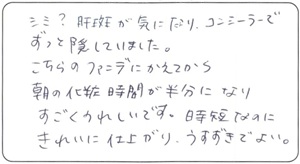 シミ？肝斑が気になり、コンシーラーで
ずっと隠していました。
こちらのファンデにかえてから
朝の化粧時間が半分になり
すごくうれしいです。時短なのに
きれいに仕上がり、うすずきでよい。